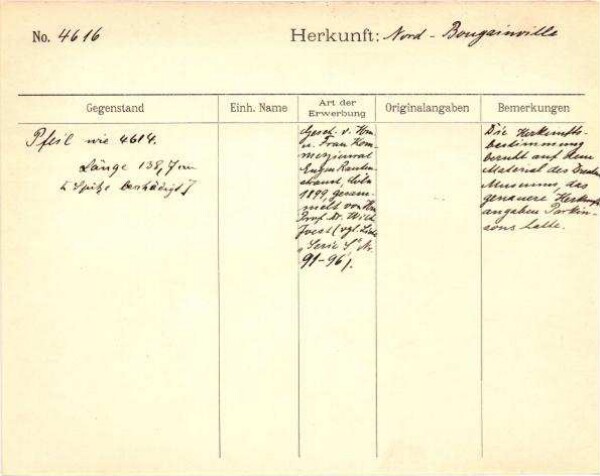 No. 4616 Herkunft: Nord - Bougainville
Gegenstand Einh. Name Art der Erwerbung Originalangaben Bemerkungen
Pfeil wie 4614.
Länge 138,7 cm
[Spitze beschädigt]
Gesch. v. Hrn
u. Frau Kom-
merzienrat
Eugen Rauten-
strauch, Cöln
1899, gesam-
melt von Hrn
Prof. Dr. Wilh
Joest (vgl. Liste
"Serie S", Nr.
91-96).
Die Herkunfts-
bestimmung
beruht auf dem
Material des Dresdn
Museums, das
genauere Herkunfts-
angaben Parkin-
sons hatte.